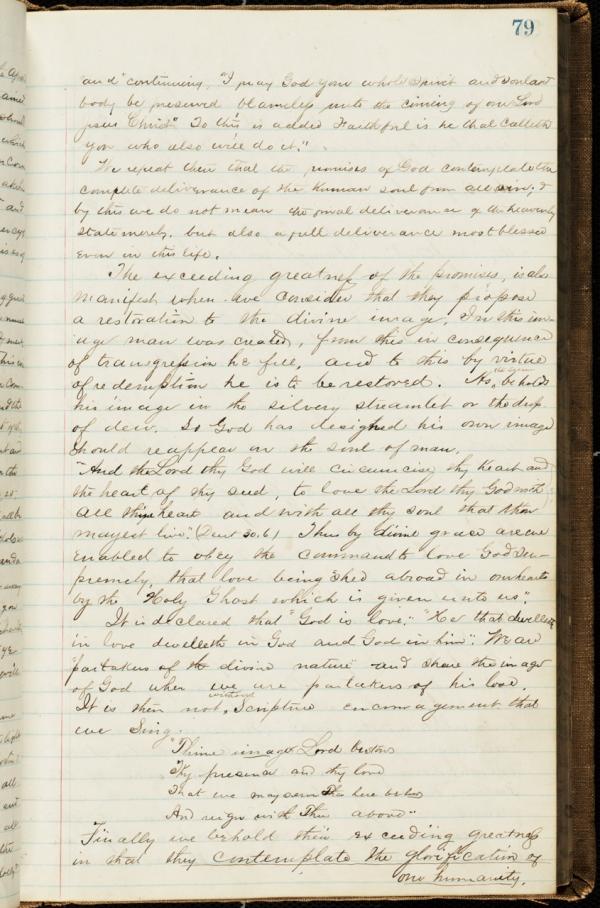 79
and" continuing, "I pray God your whole spirit and soul and
body be preserved blameless unto the coming of our Lord
Jesus Christ" To this is added Faithful is he that calleth
you who also will do it."
We repeat then that the promises of God contemplate the
complete deliverance of the human soul from all sin, &
by this we do not mean the final deliverance of the heavenly
state merely, but also a full deliverance most blessed
even in this life.
The exceeding greatness of the promises, is also
manifest when we consider that they propose
a restoration to the divine image. In this im-
age man was created, from this in consequence
of transgression he fell, and to this by virtue
of redemption he is to be restored. As, beholds
his image in the silvery streamlet or the drop
of dew. So God has designed his own image
should reappear in the soul of man.
"And the Lord thy God will circumcise thy heart and
the heart of thy seed, to love the Lord thy God with
all thine heart and with all thy soul that thou
mayest live". (Deut 30.6) Thus by divine grace are we
enabled to obey the command to love God su-
premely, that love being "shed abroad in our hearts
by the Holy Ghost which is given unto us".
It is declared that "God is love". "He that dwelleth
in love dwelleth in God and God in him". We are
partakers of the divine nature and share the image
of God when we are partakers of his love.
It is then not without Scripture encouragement that
we Sing.
"Thine image Lord bestow
Thy presence and thy love
That we may serve Thee here below
And reign with Thee above"
Finally we behold their exceeding greatness
in that they contemplate the glorification of
our humanity.